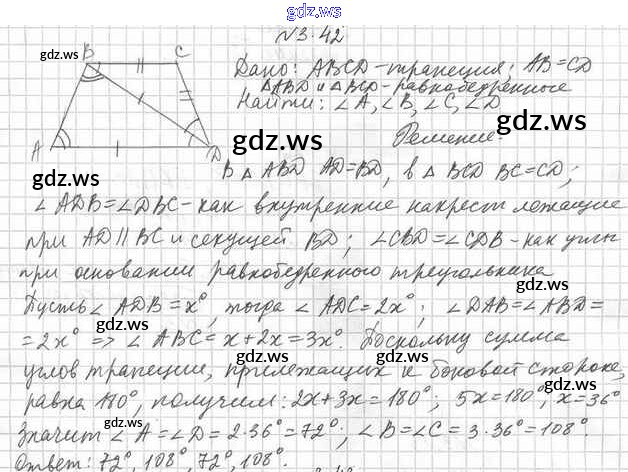 gdz.ws
N 3.42
gdz.ws B C Дано: ABCD - трапеция; AB = CD
gdz.ws
△ABD и △BCD - равнобедренные
Найти: ∠A, ∠B, ∠C, ∠D
gdz.ws
gdz.ws
Решение.
A D
В △ ABD AD = BD, в △ BCD BC = CD;
gdz.ws
∠ ADB = ∠DBC - как внутренние накрест лежащие
при AD ∥ BC и секущей BD; ∠CBD = ∠CDB - как углы
gdz.ws
при основании равнобедренного треугольника
Пусть ∠ ADB = x°, тогда ∠ ADC = 2x°; ∠DAB = ∠ABD =
gdz.ws
= 2x° => ∠ ABC = x + 2x = 3x°. Поскольку сумма
gdz.ws
gdz.ws
углов трапеции, прилежащих к боковой стороне,
gdz.ws
равна 180°, получим: 2x + 3x = 180°; 5x = 180°, x = 36°
Значит ∠ A = ∠D = 2·36° = 72°; ∠B = ∠C = 3·36° = 108°.
gdz.ws
gdz.ws
Ответ: 72°, 108°, 72°, 108°.